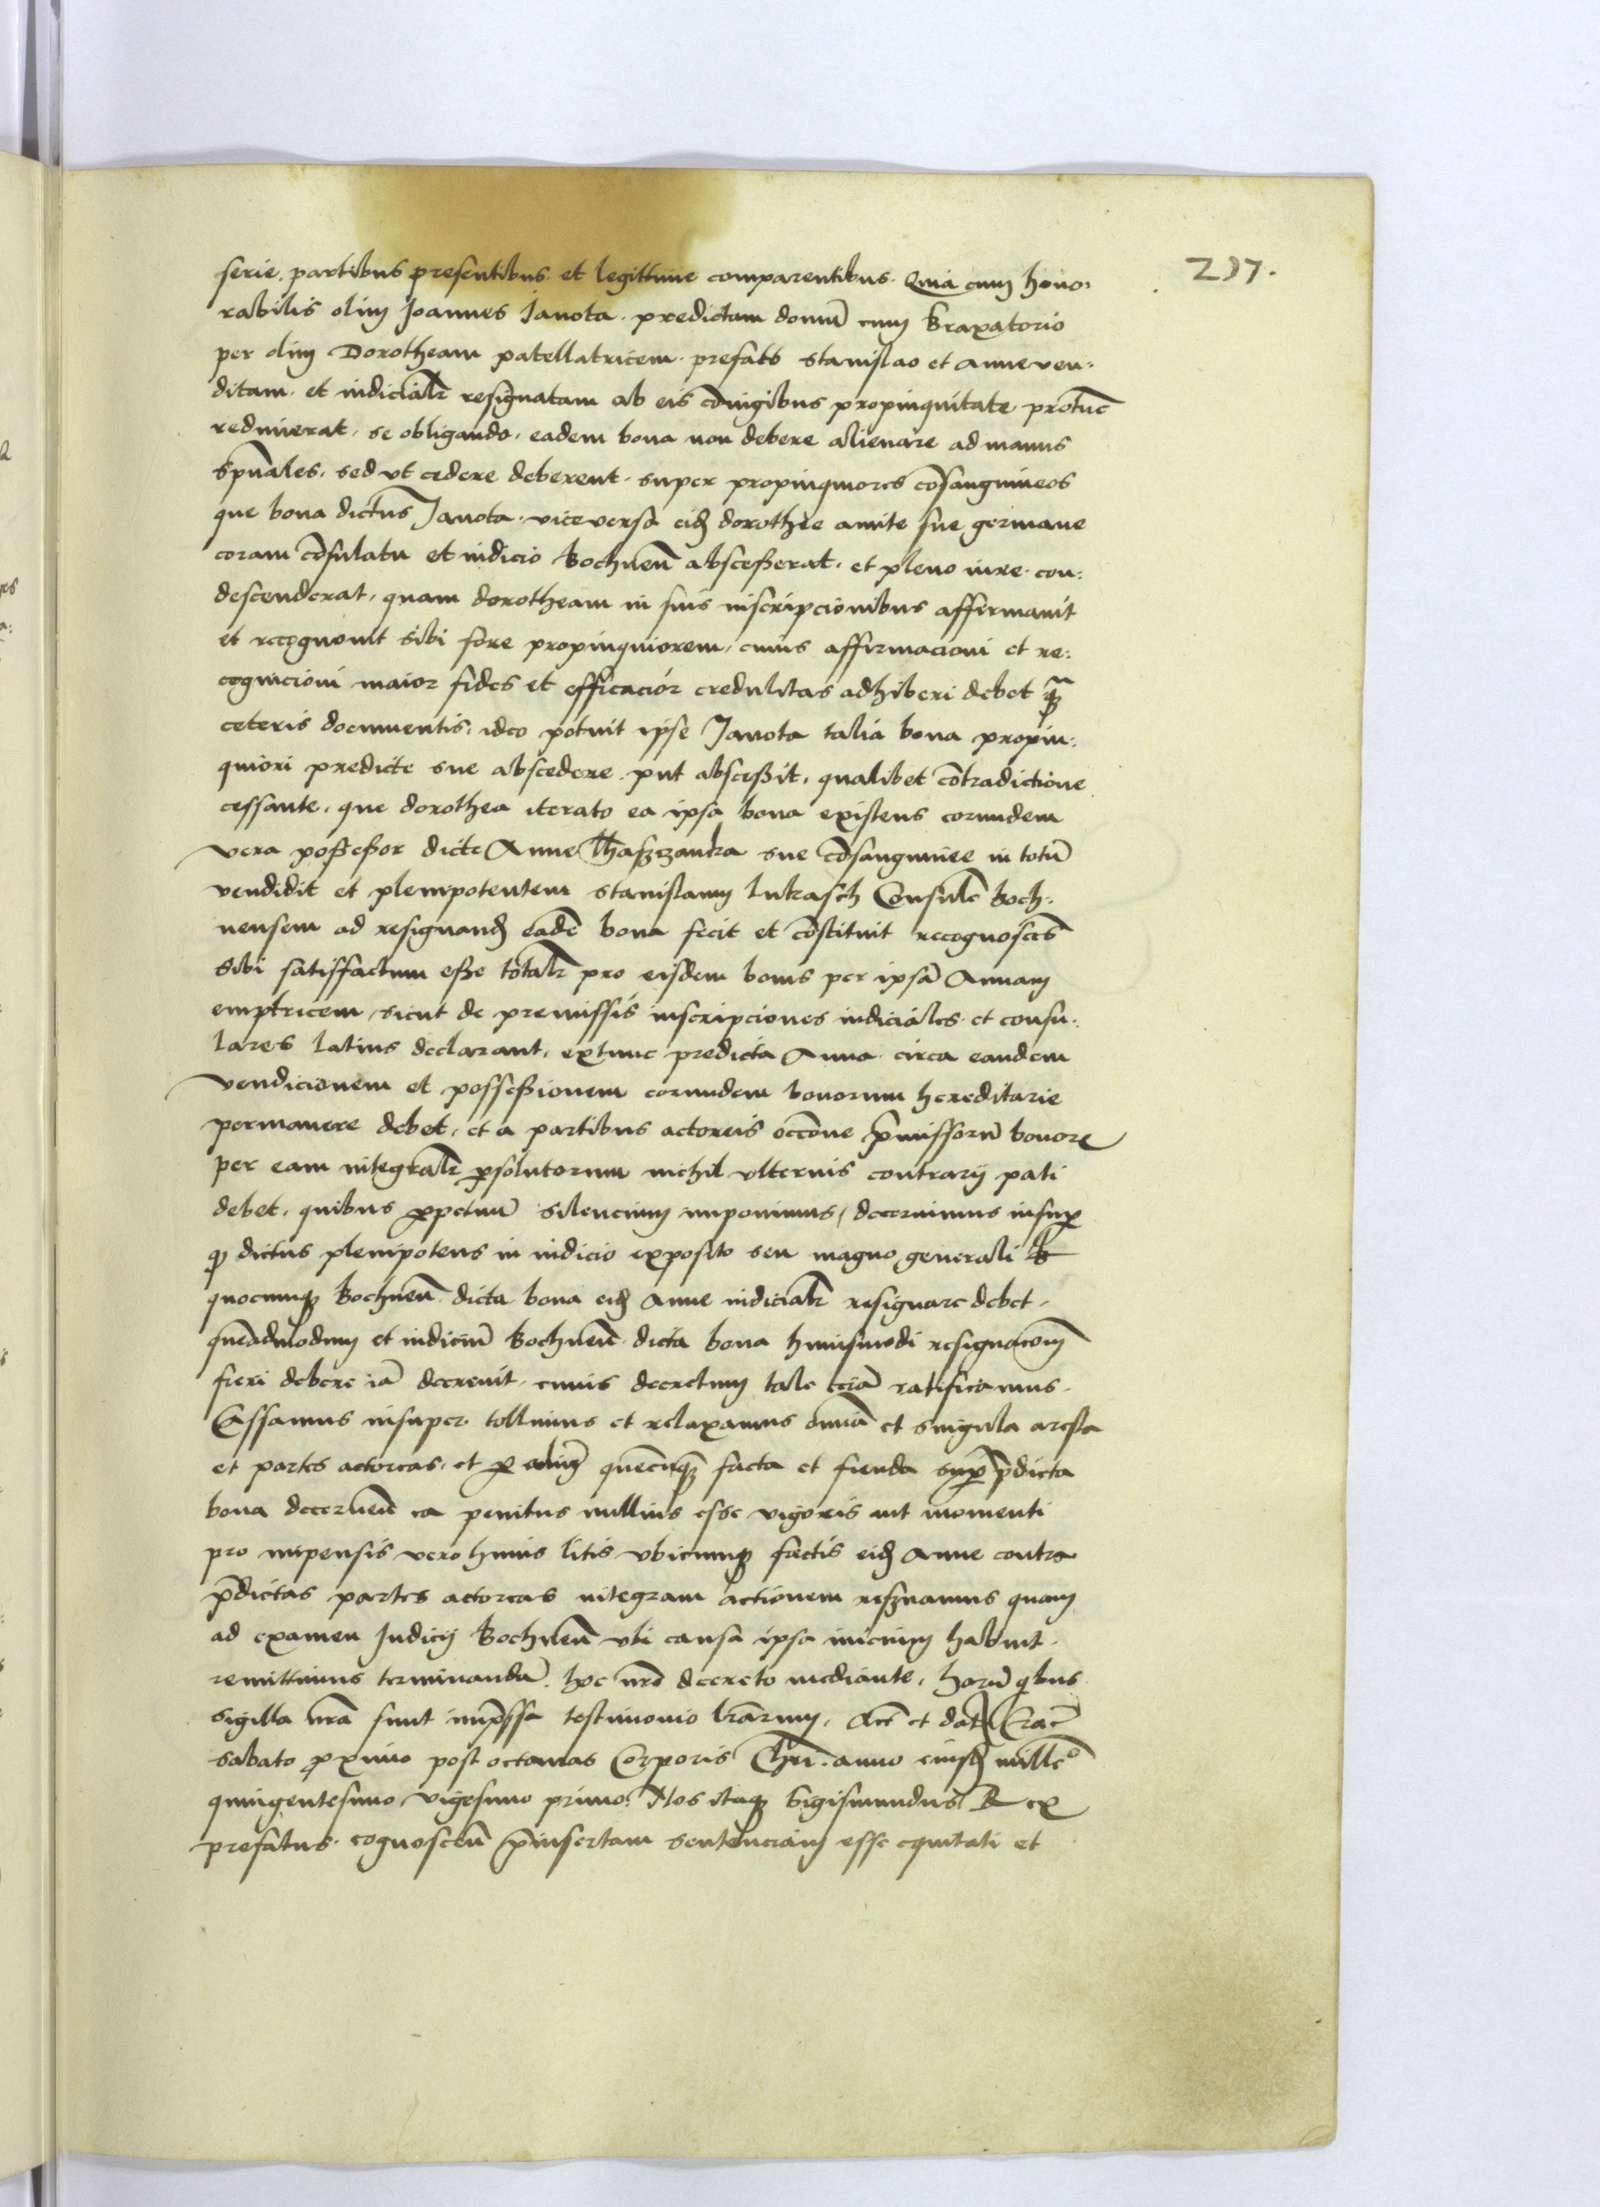 237.
serie. partibus presentibus et legittime comparentibus. Quia cum hono:
rabilis olim Joannes Janota. predictam domu̅ cum braxatorio
per olim Dorotheam patellatricem. prefato Stanislao et Anne ven:
ditam. et iudicialr̅ resignatam ab eis co̅iugibus propinquitate protu̅c
redimerat. se obligando. eadem bona non debere alienare ad manus
sp̅uales. sed vt cedere deberent. super propinquiores co̅sanguineos
que bona dictus Janota. vice versa eid̅ dorothee amite sue germane
coram co̅sulatu et iudicio Bochnen̅ abscesserat. et pleno iure con:
descenderat. quam dorotheam in suis inscripcionibus affirmauit
et recognouit sibi fore propinquiorem, cuius affirmacioni et re:
cognicioni maior fides et efficacior credulitas adhiberi debet q̅
ceteris documentis. ideo potuit ipse Janota talia bona propin:
quiori predicte sue abscedere. put abscessit. qualibet co̅tradictione
cessante. que dorothea iterato ea ipsa bona existens eorundem
vera possessor dicte Anne sue co̅sanguinee in totu̅
vendidit et plenipotentem Stanislaum Lukasch Consule̅ Boch:
nensem ad resignand̅ eade̅ bona fecit et co̅stituit recognosce̅s
sibi satisfactum esse totalr̅ pro eisdem bonis per ipsa̅ Annam
emptricem, sicut de premissis inscripciones iudiciales. et consu:
lares latius declarant. extunc predicta Anna. circa eandem
vendicionem et possessionem eorundem bonorum hereditarie
permanere debet. et a partibus actoreis occ̅one p̅missoru̅ bonor̅
per eam integralr̅ p̱solutorum nichil vlterius contrarij pati
debet. quibus p̱petuu̅ silencium imponimus, decernimus insup̱
q̱ dictus plenipotens in iudicio exposito seu magno generali
quocunq̱ Bochnen̅. dicta bona eid̅ Anne iudicialr̅ resignare debet.
que̅admodum et iudiciu̅ Bochnen̅. dicta bona huiusmodi resignac̅om̅
fieri debere ia̅ decreuit. cuius decretum tale ecia̅ ratificamus.
Cassamus insuper. tollimus et relaxamus om̅ia et singula aresta
et partes actoreas. et p̱ aliu̅ quecu̅q̱ facta et fienda sup̱ p̅dicta
bona decernen̅ ea penitus nullius esse vigoris aut momenti
pro impensis vero huius litis vbicunq̱ factis eid̅ Anne contra
p̅dictas partes actoreas integram actionem res̱uamus quam
ad examen Judicij Bochnen̅ vbi causa ipsa inicium habuit.
remittimus terminanda̅. hoc nr̅o decreto mediante. Haru̅ q̱bus
sigilla nr̅a sunt imp̅ssa testimonio lr̅arum. Act̅ et dat̅ Crac̅
sabato p̱ximo post octauas Corporis Chr̅i. anno eiusd̅ mille̅o
quingentesimo vigesimo primo. Nos itaq̱ Sigismundus Rex
prefatus. cognoscen̅ p̅insertam sentenciam esse equitati et